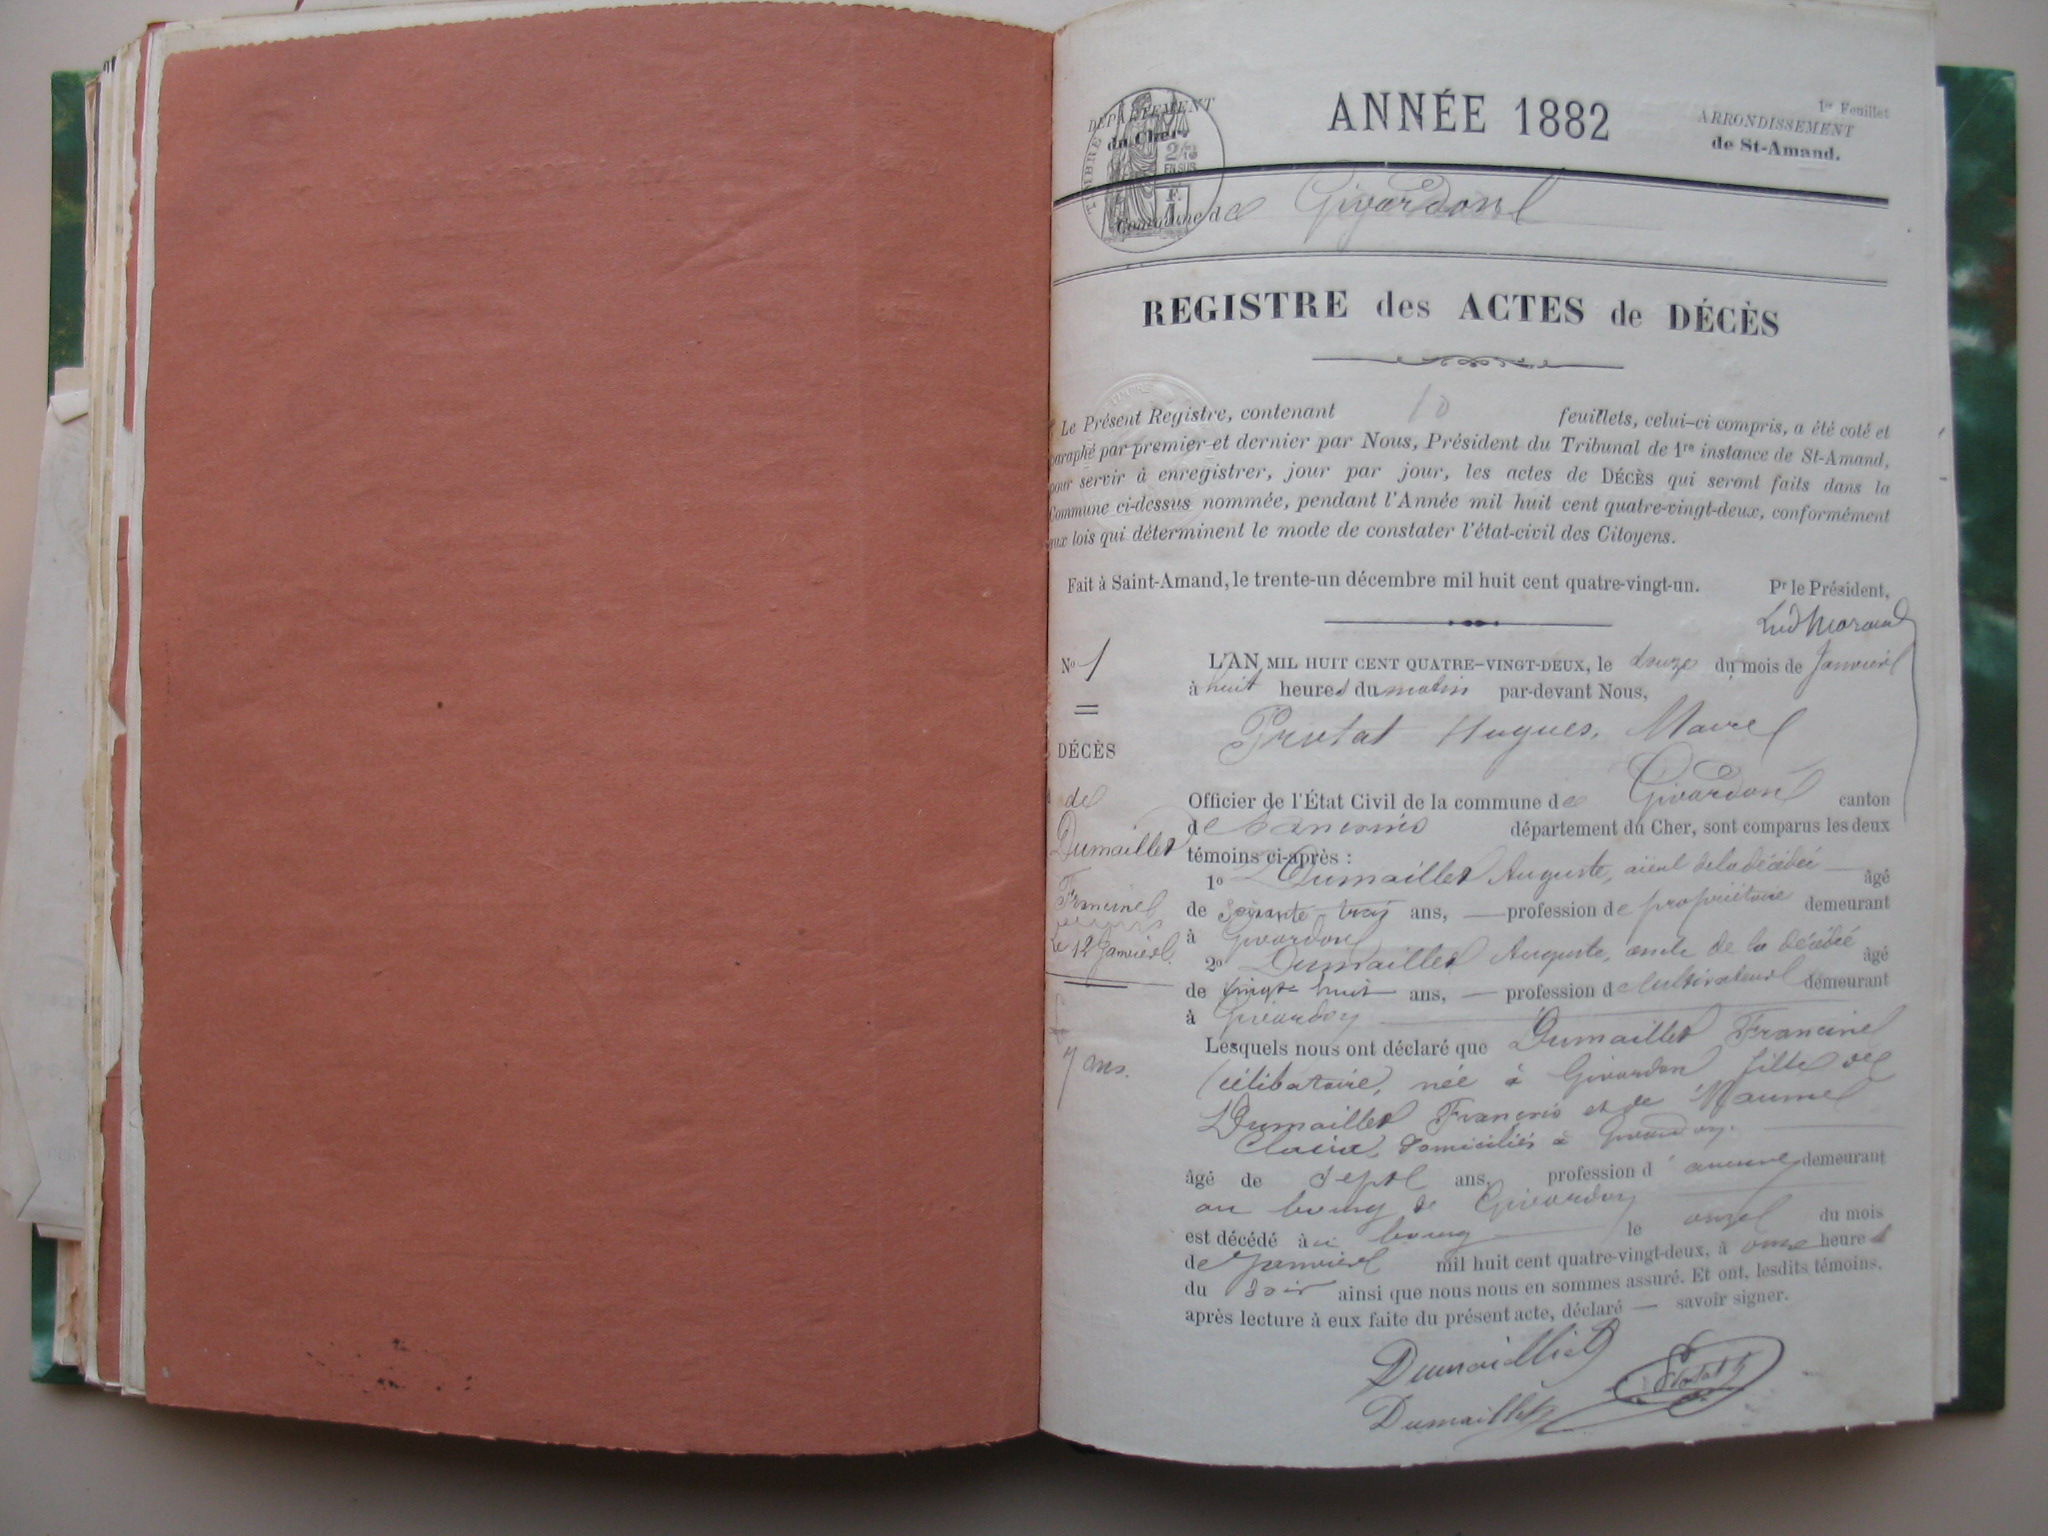 1er Feuillet
DÉPARTEMENT
du Cher
ANNÉE 1882
ARRONDISSEMENT
de St-Amand.
TIMBRE
2/10
EN SUS
F.
1
Commune de Givardon
REGISTRE des ACTES de DÉCÈS
Le Présent Registre, contenant 10 feuillets, celui-ci compris, a été coté et
paraphé par premier et dernier par Nous, Président du Tribunal de 1re instance de St-Amand,
pour servir à enregistrer, jour par jour, les actes de DÉCÈS qui seront faits dans la
Commune ci-dessus nommée, pendant l'Année mil huit cent quatre-vingt-deux, conformément
aux lois qui déterminent le mode de constater l'état-civil des Citoyens.
Fait à Saint-Amand, le trente-un décembre mil huit cent quatre-vingt-un.
Pr le Président,
No 1
DÉCÈS
de
Dumaillet
Francine
Le 12 Janvier.
7 ans.
L'AN MIL HUIT CENT QUATRE-VINGT-DEUX, le douze du mois de Janvier
à huit heures du matin par-devant Nous,
Hugues, Maire
Officier de l'État Civil de la commune de Givardon canton
de Sancoins département du Cher, sont comparus les deux
témoins ci-après :
1o Dumaillet Auguste, aïeul de la décédée — âgé
de soixante-trois ans, — profession de propriétaire demeurant
à Givardon
2o Dumaillet Auguste, oncle de la décédée âgé
de vingt-huit ans, — profession de Cultivateur demeurant
à Givardon
Lesquels nous ont déclaré que Dumaillet Francine
Célibataire, née à Givardon fille de
Dumaillet François et de
Claire, domiciliés à Givardon.
âgé de sept ans, profession d'aucune demeurant
au bourg de Givardon
est décédé à ce bourg le onze du mois
de Janvier mil huit cent quatre-vingt-deux, à onze heures
du soir ainsi que nous nous en sommes assuré. Et ont, lesdits témoins,
après lecture à eux faite du présent acte, déclaré — savoir signer.
Dumailliet
Dumaillet